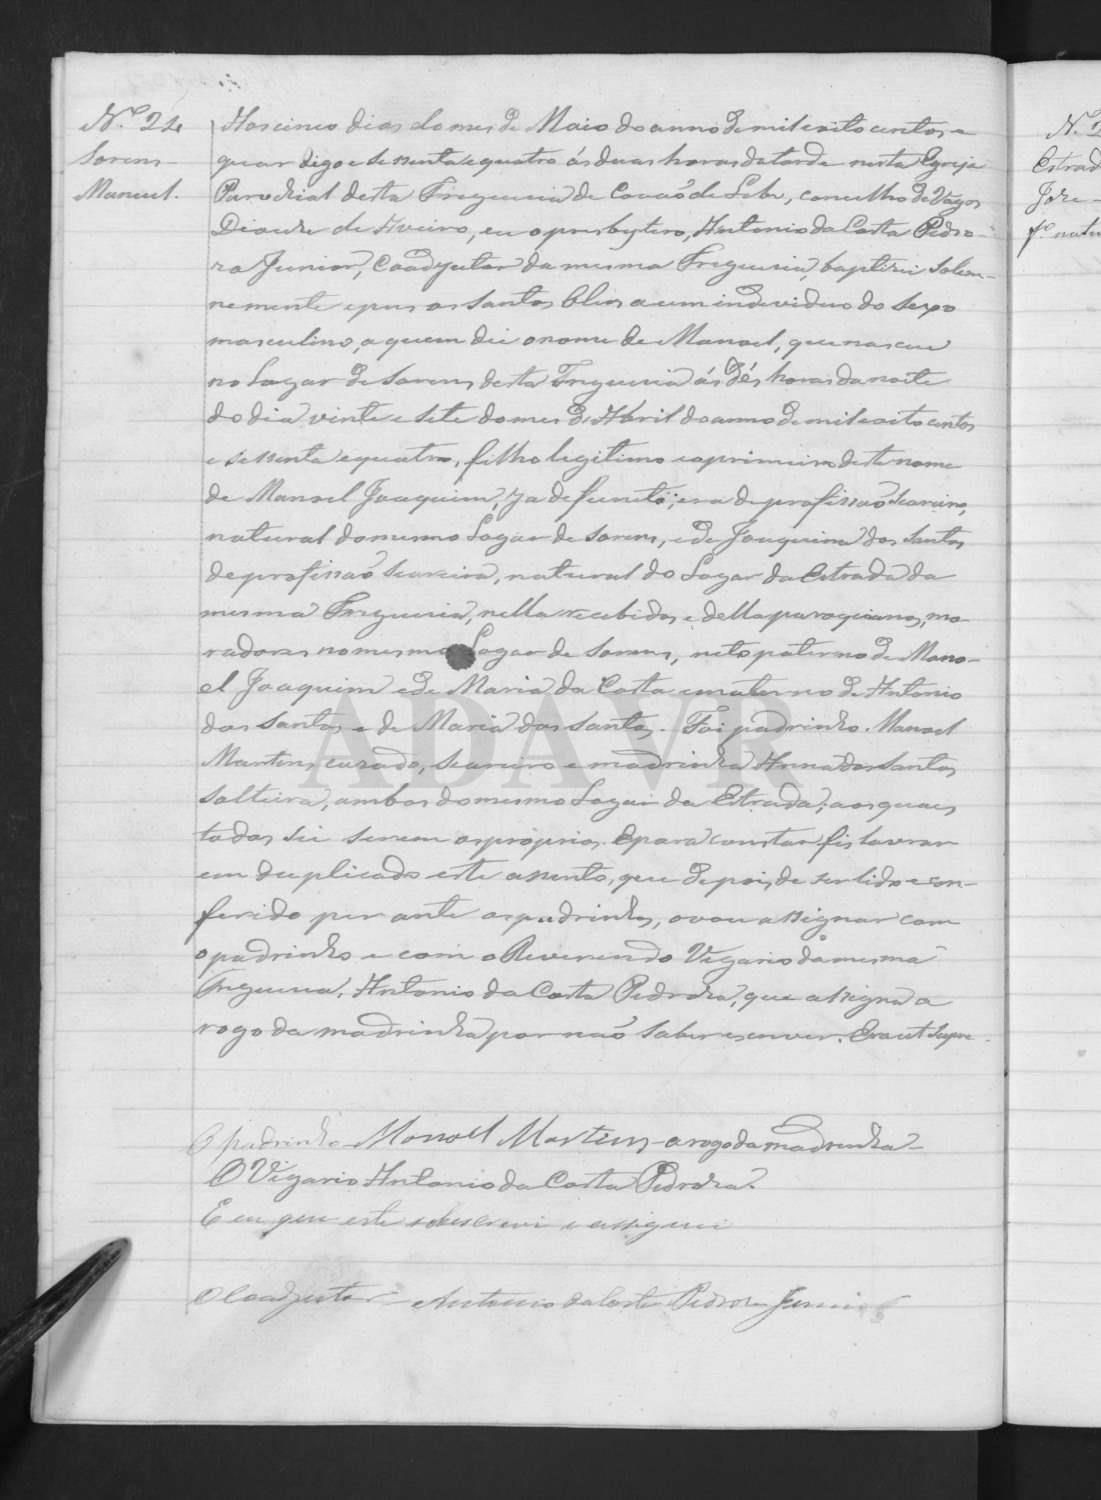 N.º 24
Sorens
Manuel.
Aos cinco dias do mes de Maio do anno de mil e oito centos e
quar digo e sessenta e quatro ás duas horas da tarde nesta Egreja
Parochial desta Freguesia de Covaõ do Lobo, concelho de Vagos
Diocese de Aveiro, eu o presbytero, Antonio da Costa Pedro-
za Junior, Coadjutor da mesma Freguesia, baptizei solem-
nemente e pus os santos Oleos a um individuo do sexo
masculino, a quem dei o nome de Manoel, que nasceu
no Lugar de Sorens desta Freguesia ás dés horas da noite
do dia vinte e sete do mes de Abril do anno de mil e oito centos
e sessenta e quatro, filho legitimo e o primeiro deste nome
de Manoel Joaquim, ja defuncto; era de profissaõ seareiro,
natural do mesmo Lugar de Sorens, e de Joaquina dos Santos
de profissaõ seareira, natural do Lugar da Estrada da
mesma Freguesia, nella recebidos e della paroquianos, mo-
radores no mesmo Lugar de Sorens, neto paterno de Mano-
el Joaquim e de Maria da Costa e materno de Antonio
dos Santos e de Maria dos Santos. Foi padrinho Manoel
Martins, cazado, seareiro e madrinha Anna dos Santos
solteira, ambos do mesmo Lugar da Estrada; aos quaes
todos sei serem os proprios. E para constar fis lavrar
em duplicado este assento, que depois de ser lido e con-
ferido per ante os padrinhos, o vou assignar com
o padrinho e com o Reverendo Vigario da mesma
Freguesia, Antonio da Costa Pedroza, que assigna a
rogo da madrinha por naõ saber escrever. Era ut supra.
O padrinho Manoel Martins a rogo da madrinha
O Vigario Antonio da Costa Pedroza.
E eu que este sobescrevi e assignei
O Coadjutor Antonio da Costa Pedroza Junior
ADAVR
Nº 2
Estrad
Joze
fº natu